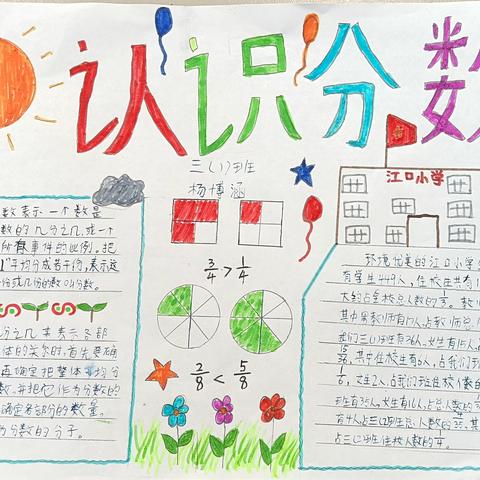 认识分数
三(1)班
杨博涵
江口小学
数表示一个数是
数的几分之几,或一个
所有事件的比例。把
"1"平均分成若干份,表示这
份或几份的数叫分数。
分之几来表示各部
体的关系时,首先要确
再确定把整体平均分
数,并把它作为分数的
确定各部份的数量。
为分数的分子。
3/4 > 1/4
2/8 < 5/8
环境优美的江口小学
有学生449人,住校生共有1
大约占全校总人数的
其中男教师有17人,占教师总
我们三(1)班有36人,女生有15人,
15/36,其中住校生有6人,占我们班
1/6,女生2人,占我们班住校人数的
班有35人,女生有16人,占总人数的
有4人,占三(2)班总人数的 /35,其
占三(2)班住校人数的